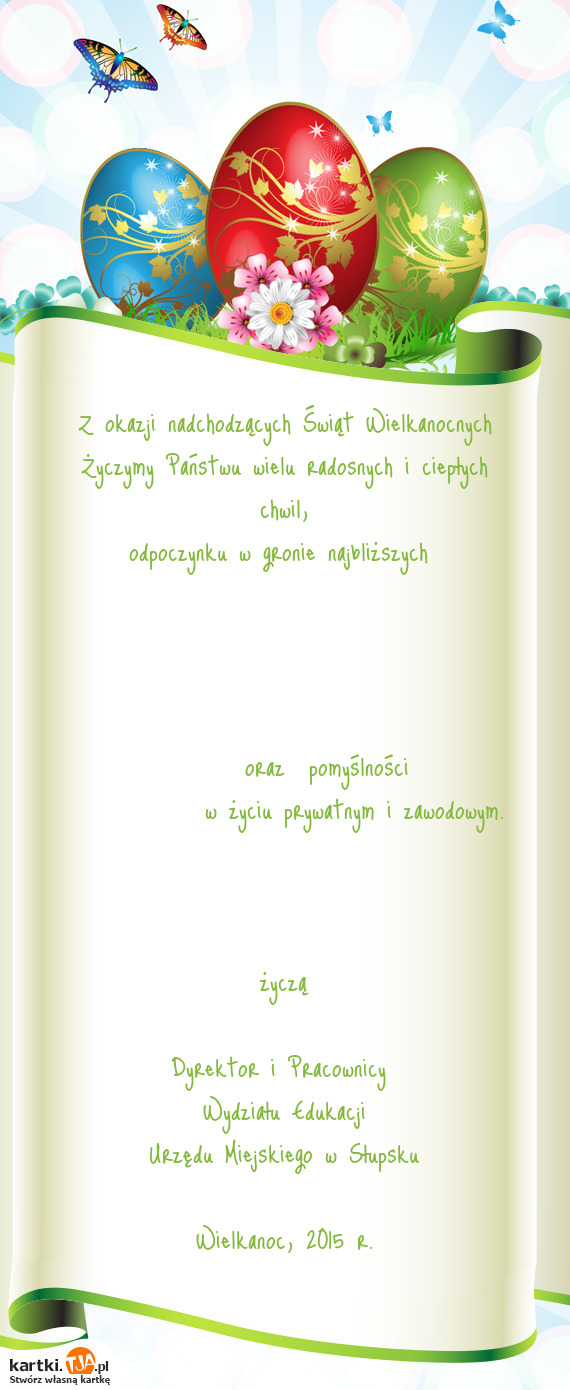 Z okazji nadchodzących Świąt Wielkanocnych
Życzymy Państwu wielu radosnych i ciepłych
chwil,
odpoczynku w gronie najbliższych
oraz pomyślności
w życiu prywatnym i zawodowym.
życzą
Dyrektor i Pracownicy
Wydziału Edukacji
Urzędu Miejskiego w Słupsku
Wielkanoc, 2015 r.
kartki.TJA.pl
Stwórz własną kartkę